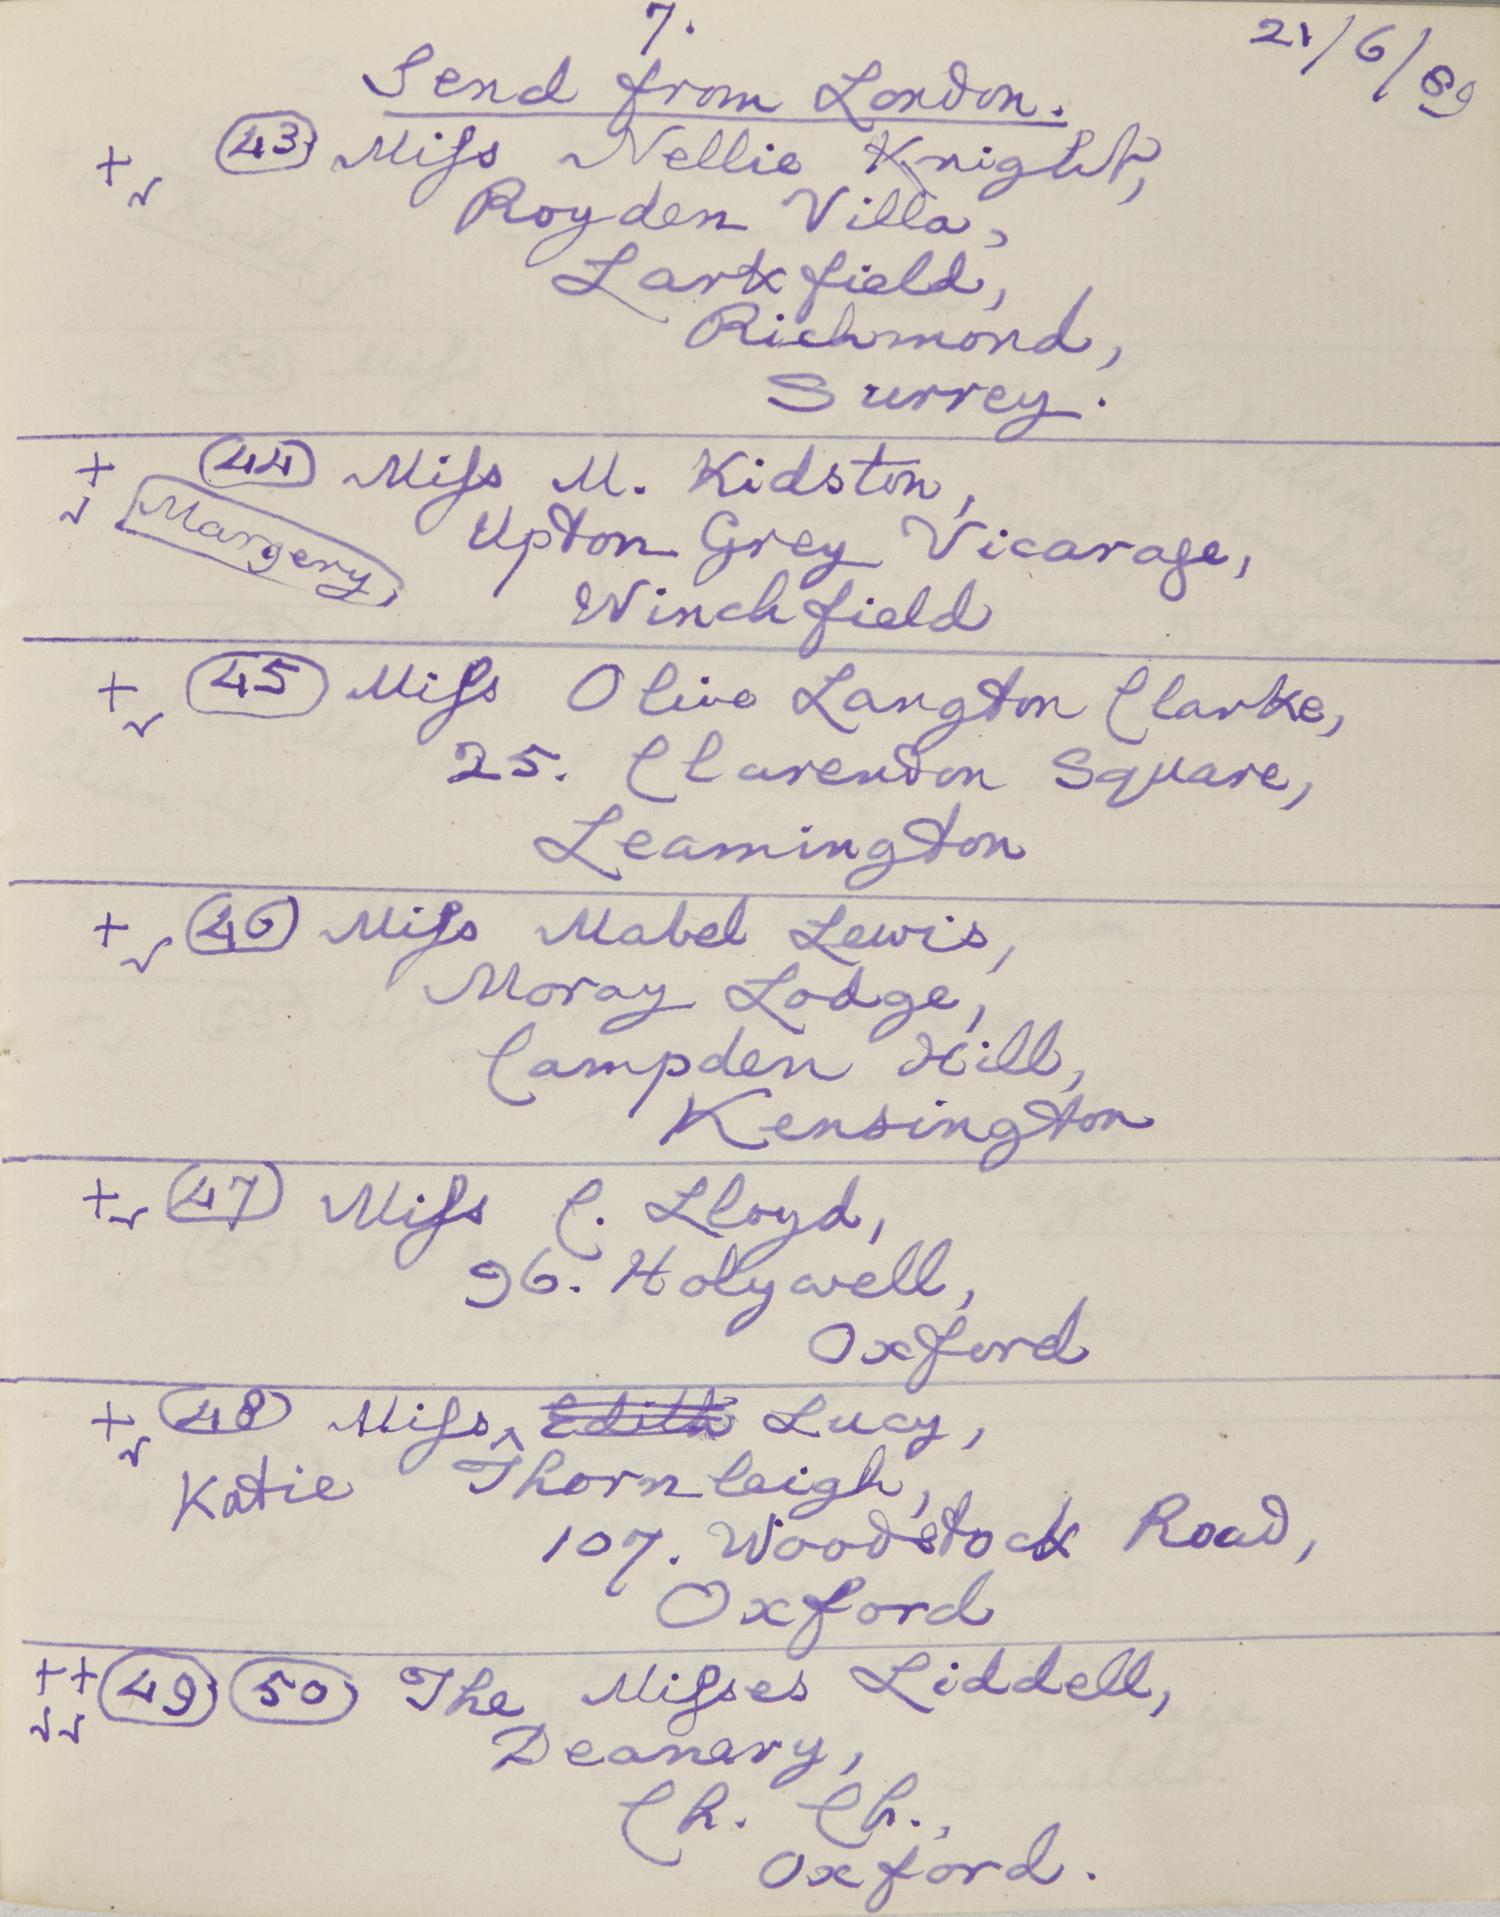 7.
21/6/89
Send from London.
+ ✓ 43 Miſs Nellie Knight,
Royden Villa,
Larkfield,
Richmond,
Surrey.
+ ✓ 44 Miſs M. Kidston,
Margery
Upton Grey Vicarage,
Winchfield
+ ✓ 45 Miſs Olive Langton Clarke,
25. Clarendon Square,
Leamington
+ ✓ 46 Miſs Mabel Lewis,
Moray Lodge,
Campden Hill,
Kensington
+ ✓ 47 Miſs C. Lloyd,
96. Holywell,
Oxford
+ ✓ 48 Miſs ‸ Edith Lucy,
Katie Thornleigh,
107. Woodstock Road,
Oxford
++ ✓✓ 49 50 The Miſses Liddell,
Deanery,
Ch. Ch.,
Oxford.